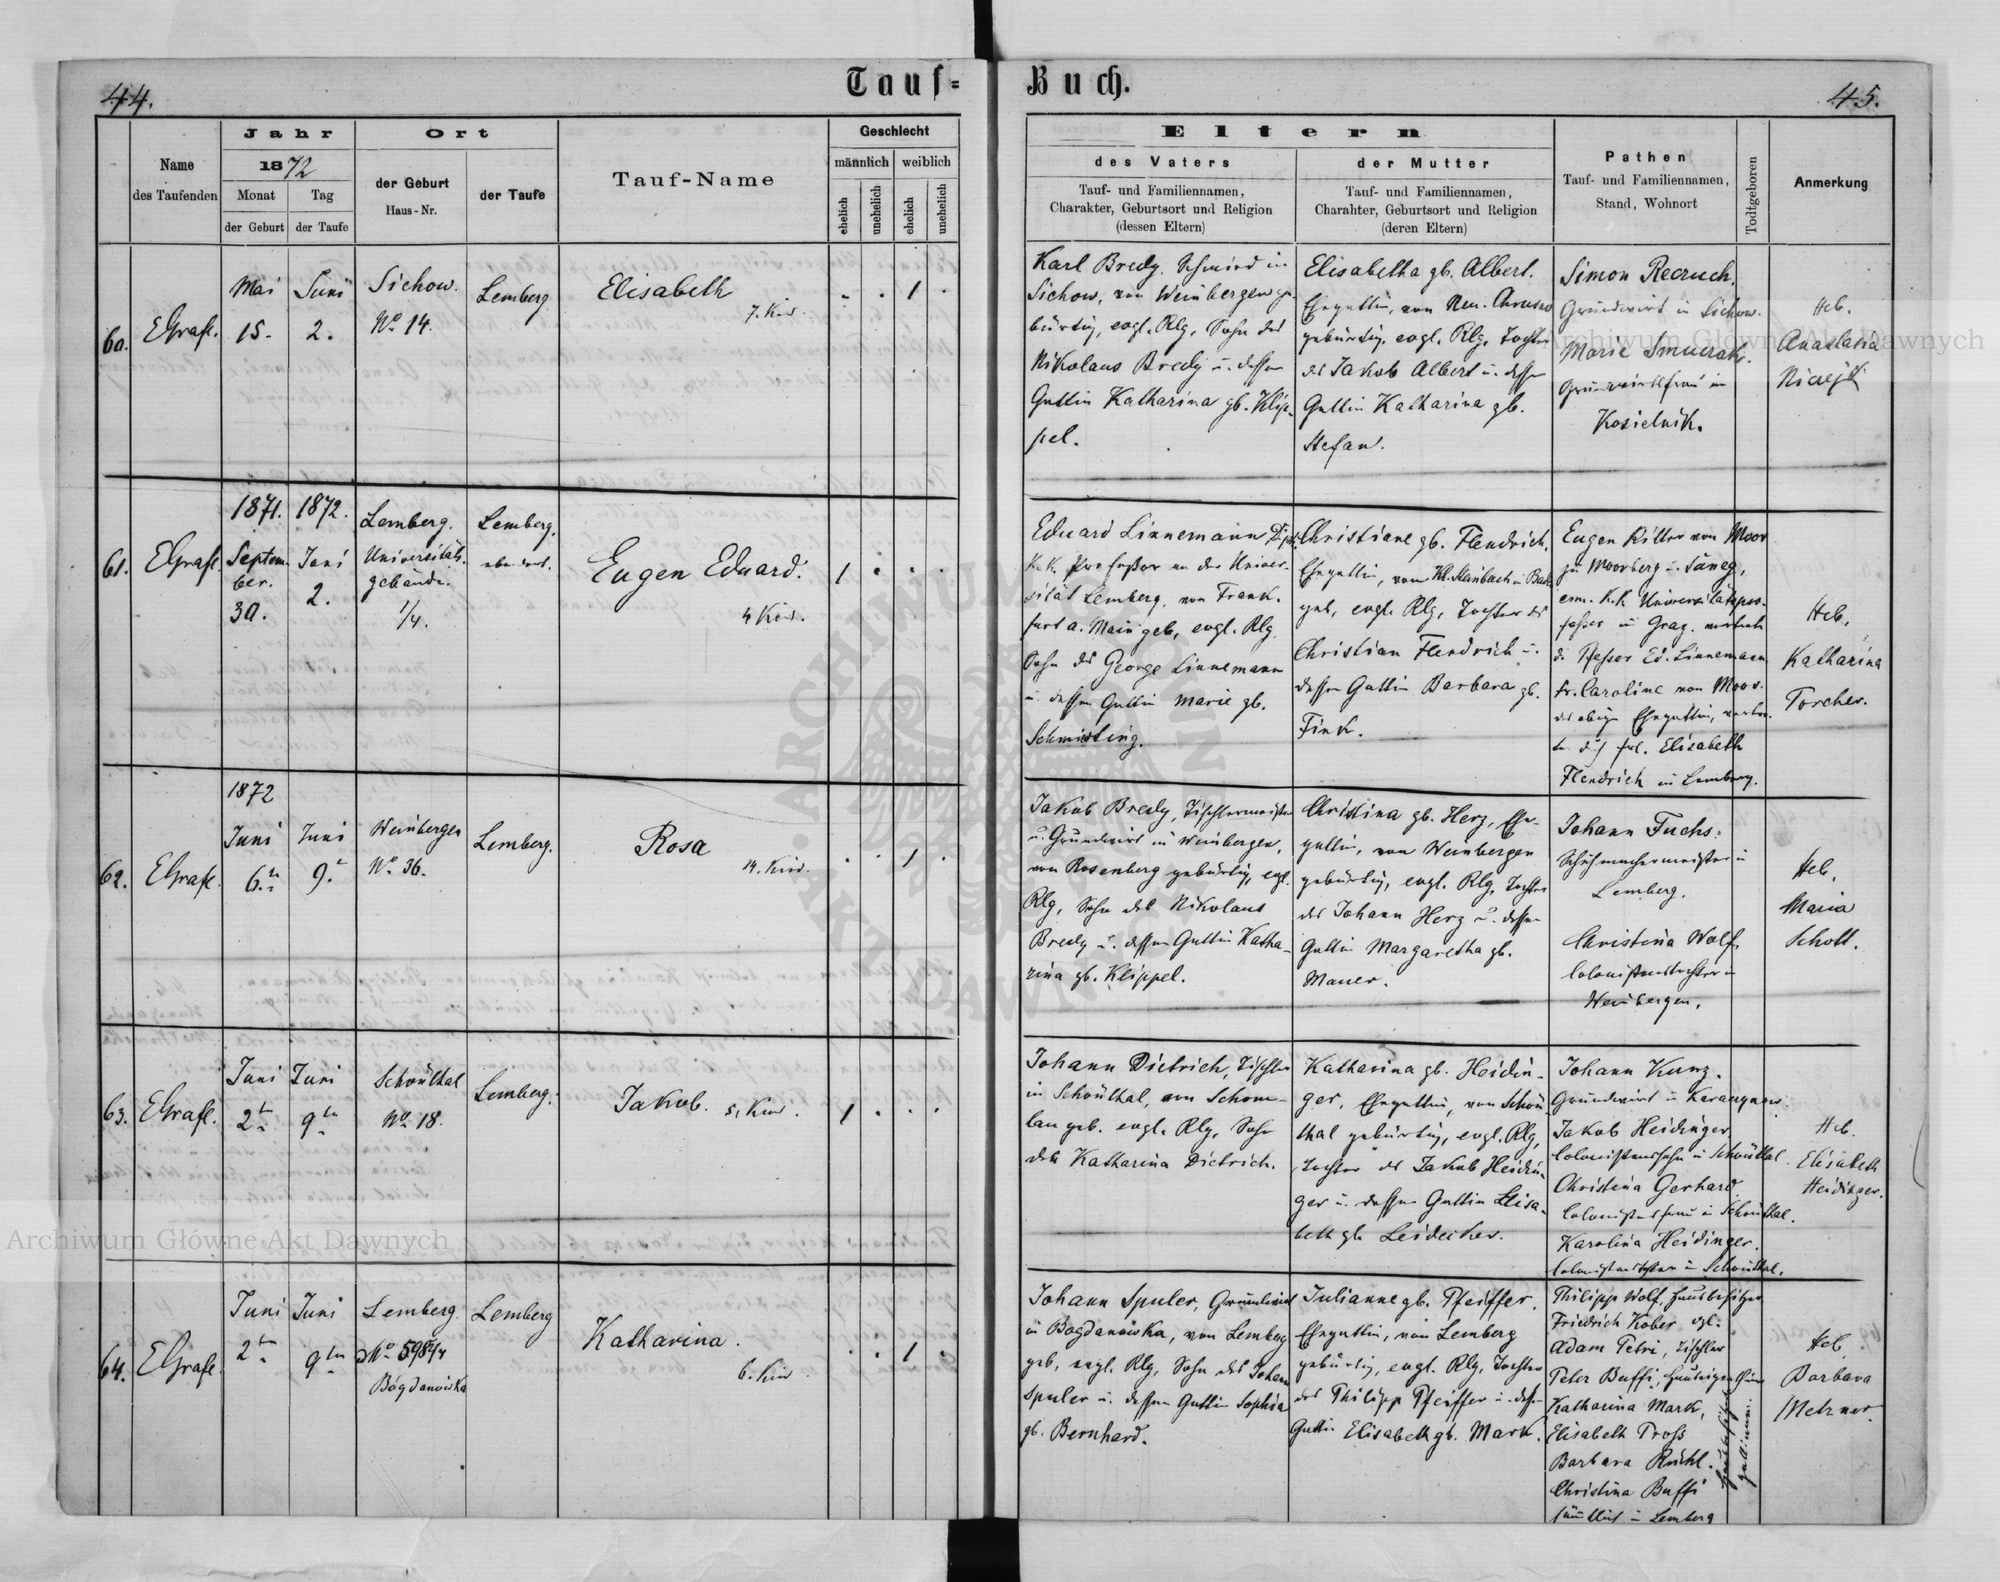 44.
Tauf-
Buch.
45.
Name
des Taufenden
Jahr
1872
Monat
der Geburt
Tag
der Taufe
Ort
der Geburt
Haus-Nr.
der Taufe
Tauf-Name
Geschlecht
männlich
weiblich
ehelich
unehelich
ehelich
unehelich
Eltern
des Vaters
Tauf- und Familiennamen,
Charakter, Geburtsort und Religion
(dessen Eltern)
der Mutter
Tauf- und Familiennamen,
Charahter, Geburtsort und Religion
(deren Eltern)
Pathen
Tauf- und Familiennamen,
Stand, Wohnort
Todtgeboren
Anmerkung
60.
EGrafl.
Mai
15.
Juni
2.
Sichow.
No 14.
Lemberg
Elisabeth
7. Kind.
1
Karl Bredy, Schmied in
Sichow, von Weinbergen ge-
bürtig, evgl. Rlg, Sohn des
Nikolaus Bredy u. dessen
Gattin Katharina gb. Klip-
pel.
Elisabetha gb. Albert.
Ehegattin, von
gebürtig, evgl. Rlg, Tochter
des Jakob Albert u. dessen
Gattin Katharina gb.
Stefan.
Simon
Grundwirt in Sichow.
Marie
Grundwirtsfrau in
Kozielnik.
Heb.
Anastasia
61.
EGrafl.
1871.
Septem-
ber.
30.
1872.
Juni
2.
Lemberg.
Universitäts-
gebäude.
1/4.
Lemberg.
Eugen Eduard.
4 Kind.
1
Eduard Linnemann,
k.k. Professor an der Univer-
sität Lemberg, von Frank-
furt a. Main geb, evgl. Rlg.
Sohn des George Linnemann
u. dessen Gattin Marie gb.
Christiane gb. Flendrich,
Ehegattin, von Kl. Steinbach in
geb, evgl. Rlg, Tochter des
Christian Flendrich u.
dessen Gattin Barbara gb.
Fink.
Eugen Ritter von Moor
zu Moorberg u.
k.k. Universitätspro-
fessor in Graz.
Ed. Linnemann
Fr. Caroline von Moor.
des obigen Ehegattin,
Elisabeth
Flendrich in Lemberg.
Heb.
Katharina
Torcher.
62.
EGrafl.
1872
Juni
6.
Juni
9.
Weinbergen
No 36.
Lemberg.
Rosa
14. Kind.
1
Jakob Bredy, Tischlermeister
u. Grundwirt in Weinbergen,
von Rosenberg gebürtig, evgl.
Rlg, Sohn des Nikolaus
Bredy u. dessen Gattin Katha-
rina gb. Klippel.
Christina gb. Herz, Ehe-
gattin, von Weinbergen
gebürtig, evgl. Rlg, Tochter
des Johann Herz u. dessen
Gattin Margaretha gb.
Mauer.
Johann Fuchs.
Schuhmachermeister in
Lemberg.
Christina Wolf,
Colonistenstochter in
Weinbergen.
Heb.
Maria
Schott.
63.
EGrafl.
Juni
2
Juni
9
Schönthal
No 18.
Lemberg.
Jakob.
5. Kind.
1
Johann Dietrich, Tischler
in Schönthal, von Schom-
lau geb. evgl. Rlg, Sohn
der Katharina Dietrich.
Katharina gb. Heidin-
ger, Ehegattin, von Schön-
thal gebürtig, evgl. Rlg,
Tochter des Jakob Heidin-
ger u. dessen Gattin Elisa-
beth gb. Leidecker.
Johann Kunz.
Grundwirt in
Jakob Heidinger
Colonistenssohn in Schönthal.
Christina Gerhard
Colonistensfrau in Schönthal.
Karolina Heidinger.
Colonistenstochter in Schönthal.
Heb.
Elisabeth
Heidinger.
64.
EGrafl.
Juni
2
Juni
9
Lemberg
No 598 4/4
Bogdanówka
Lemberg
Katharina.
6. Kind
1
Johann Spuler, Grundwirt
in Bogdanówka, von Lemberg
geb, evgl. Rlg, Sohn des Johann
Spuler u. dessen Gattin Sophia
gb. Bernhard.
Julianne gb. Pfeiffer.
Ehegattin, von Lemberg
gebürtig, evgl. Rlg, Tochter
des Philipp Pfeiffer u. dessen
Gattin Elisabeth gb. Mark.
Philipp Wolf, Hausbesitzer
Friedrich Kober
Adam Petri, Tischler
Peter Buffi,
Katharina Mark,
Elisabeth Pross
Barbara Rückl.
Christina Buffi
sämtlich in Lemberg
Heb.
Barbara
Metzner.
Archiwum Główne Akt Dawnych
Archiwum Główne Akt Dawnych